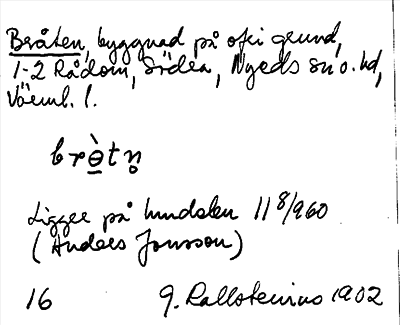 Bråten, byggnad på ofri grund,
1-2 Rådom, Södra, Nyeds sn o. hd,
Värml. l.
brò̱tn̥
Ligger på 11 8/960
(Anders Jonsson)
16 G. Kallstenius 1902